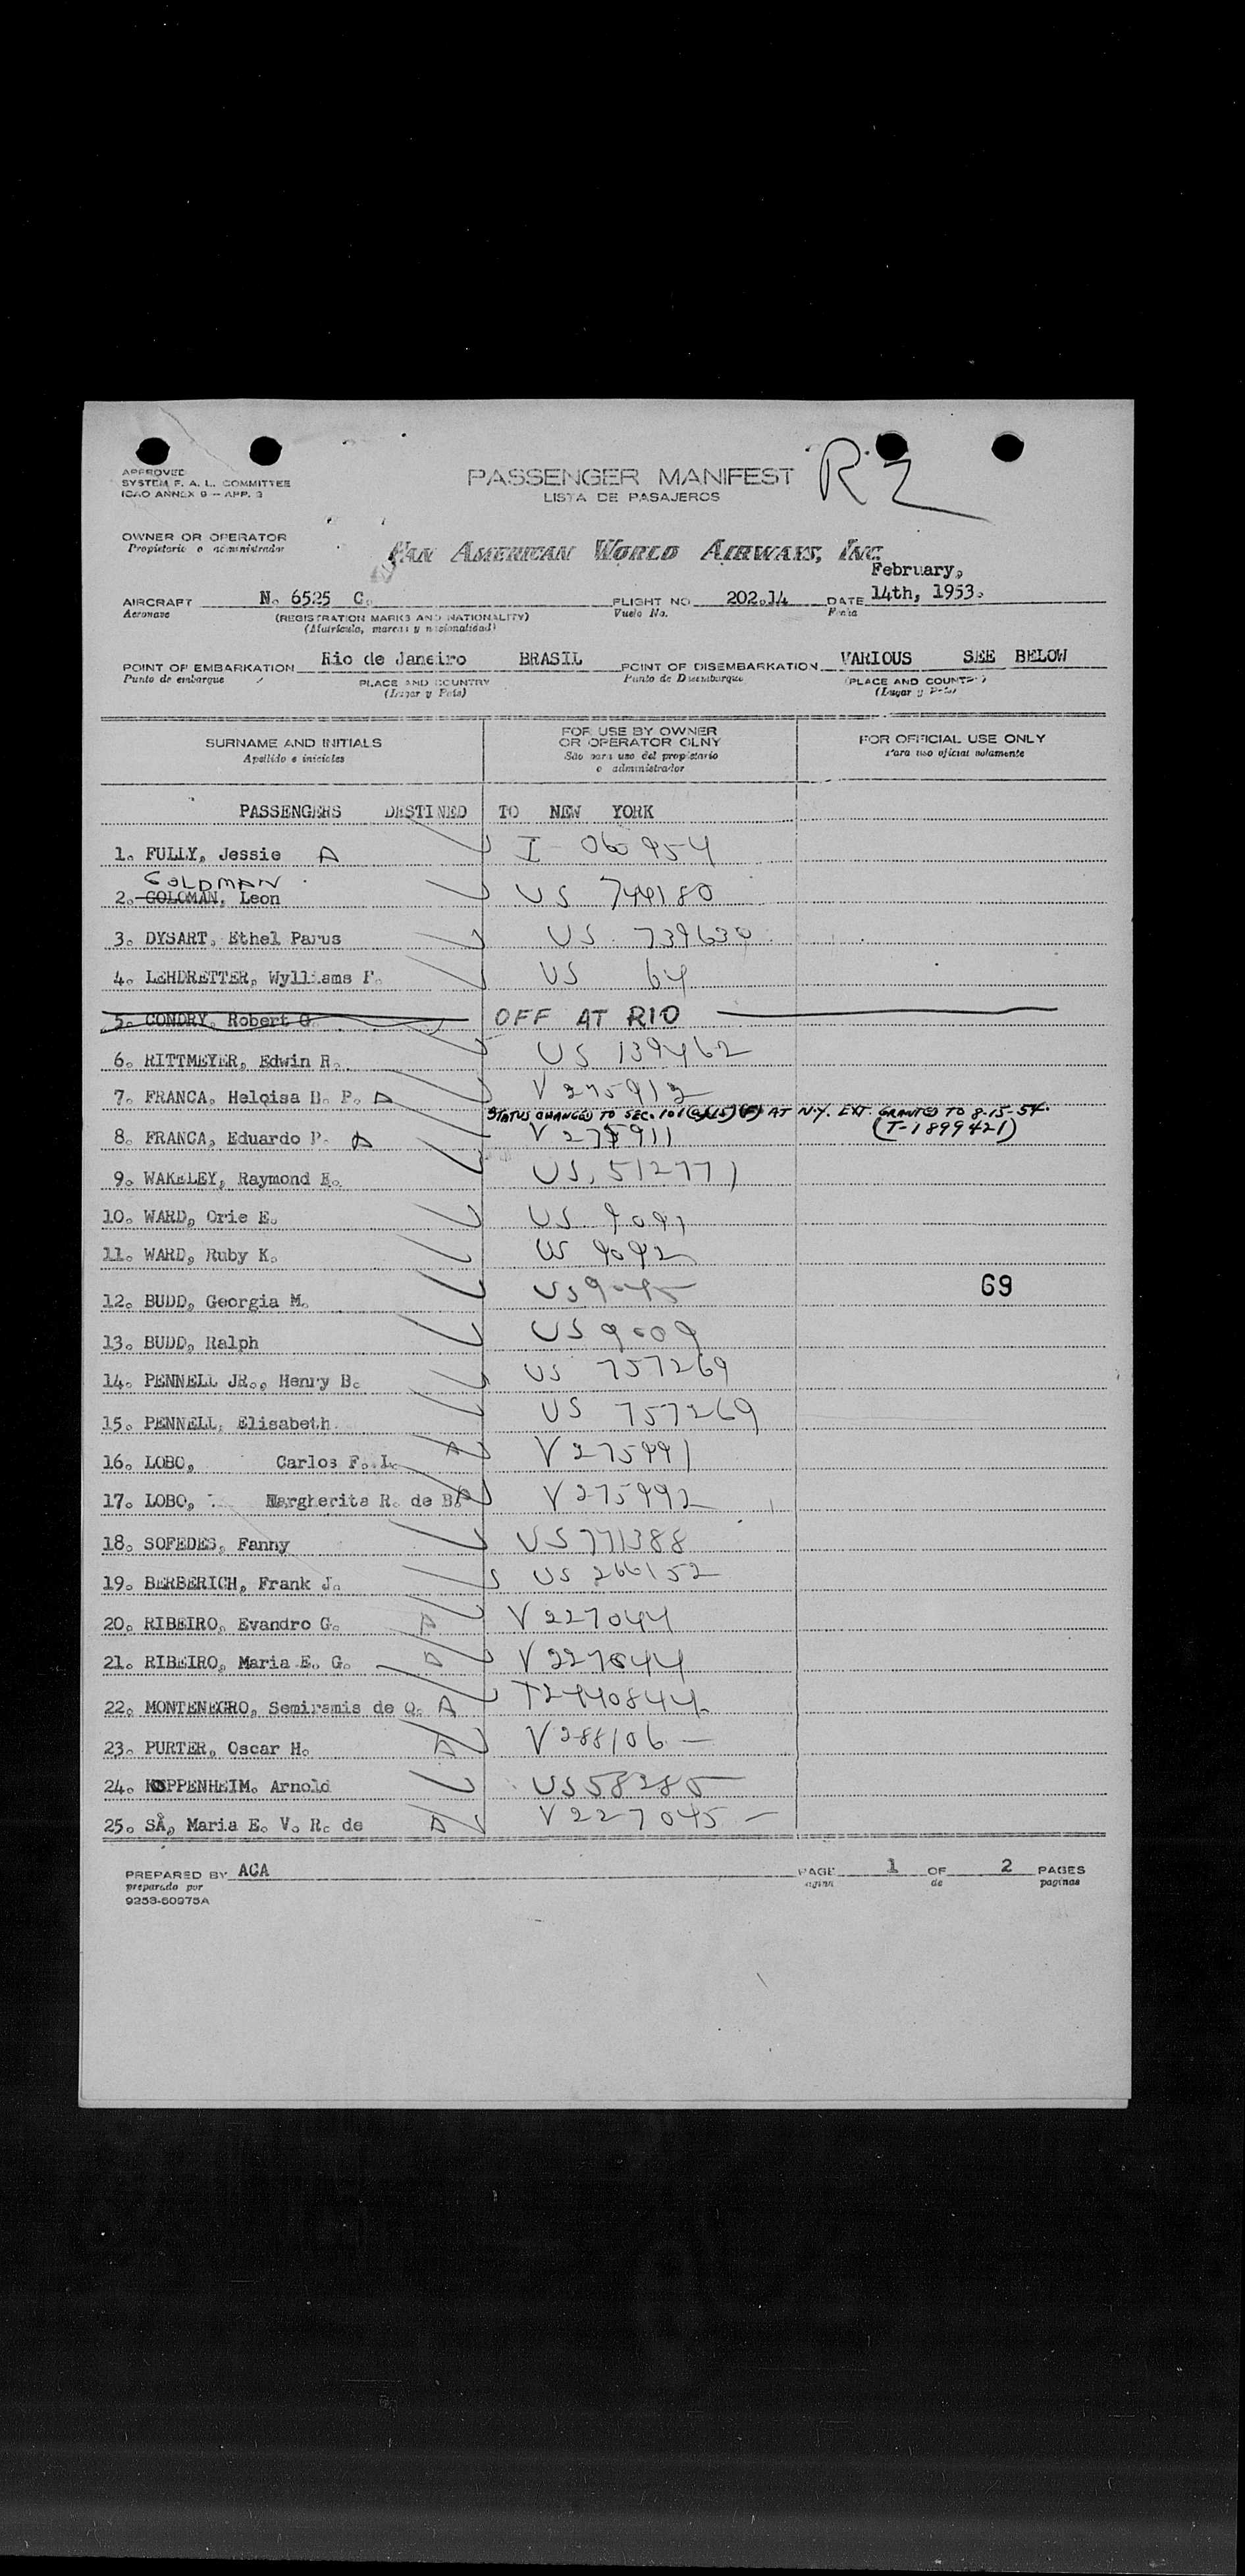 APPROVED
SYSTEM F. A. L. COMMITTEE
ICAO ANNEX 9 -- APP. 3
PASSENGER MANIFEST
LISTA DE PASAJEROS
R2
OWNER OR OPERATOR
Propietario o administrador
PAN AMERICAN WORLD AIRWAYS, INC
February,
AIRCRAFT N. 6525 C. FLIGHT NO 202.14 DATE 14th, 1953.
Aeronave (REGISTRATION MARKS AND NATIONALITY) Vuelo No. Fecha
(Matricula, marcas y nacionalidad)
POINT OF EMBARKATION Rio de Janeiro BRASIL POINT OF DISEMBARKATION VARIOUS SEE BELOW
Punto de embarque PLACE AND COUNTRY Punto de Desembarque (PLACE AND COUNTRY)
(Lugar y Pais) (Lugar y Pais)
SURNAME AND INITIALS FOR USE BY OWNER OR OPERATOR OLNY FOR OFFICIAL USE ONLY
Apellido e iniciales São para uso del propietario o administrador Para uso oficial solamente
PASSENGERS DESTINED TO NEW YORK
1. FULLY, Jessie A I-060954
GOLDMAN
2. GOLOMAN, Leon US 744180
3. DYSART, Ethel Parus US 739630
4. LEHDRETTER, Wylliams P. US 64
5. CONDRY, Robert G. OFF AT RIO
6. RITTMEYER, Edwin R. US 139462
7. FRANCA, Heloisa B. P. A V 275912
STATUS CHANGED TO SEC. 101(a)(15)(F) AT N.Y. EXT. GRANTED TO 8-15-54.
8. FRANCA, Eduardo P. A V 275911 (T-1899421)
9. WAKELEY, Raymond E. US. 512771
10. WARD, Orie E. US 9091
11. WARD, Ruby K. US 9092
12. BUDD, Georgia M. US 9045 69
13. BUDD, Ralph US 9009
14. PENNELL JR., Henry B. US 757269
15. PENNELL, Elisabeth US 757269
16. LOBO, Carlos F. L. A V 275991
17. LOBO, Margherita R. de B. A V 275992
18. SOFEDES, Fanny US 771388
19. BERBERICH, Frank J. US 266152
20. RIBEIRO, Evandro G. A V 227044
21. RIBEIRO, Maria E. G. A V 227044
22. MONTENEGRO, Semiramis de O. A T2440844
23. PURTER, Oscar H. A V 288106 —
24. KOPPENHEIM. Arnold US 58285
25. SÁ, Maria E. V. R. de A V 227045 —
PREPARED BY ACA PAGE 1 OF 2 PAGES
preparado por pagina de paginas
9253-60975A